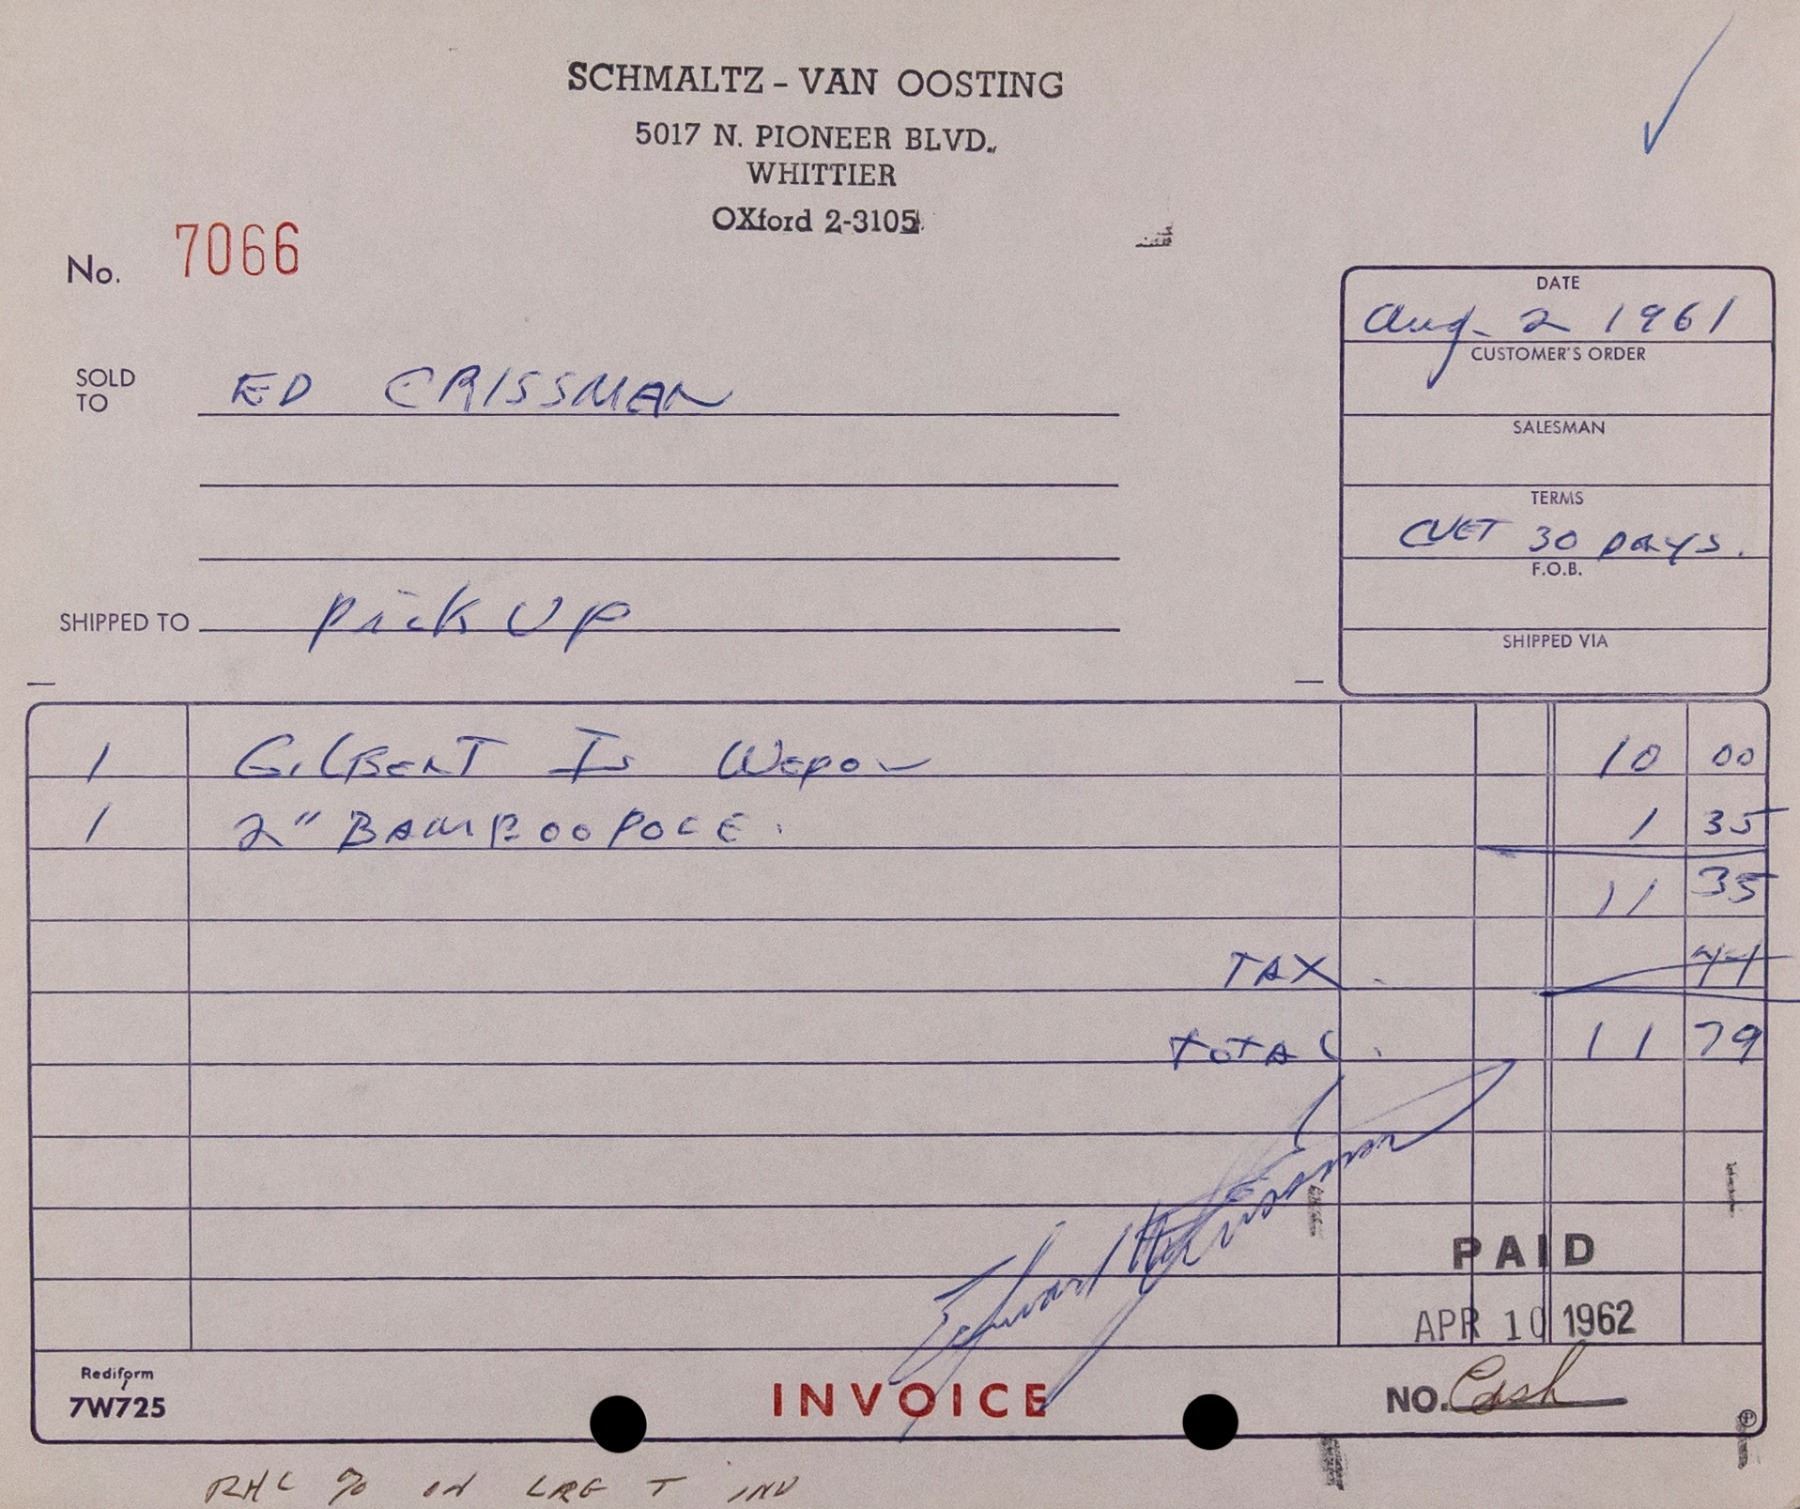 SCHMALTZ - VAN OOSTING
5017 N. PIONEER BLVD.
WHITTIER
OXford 2-3105
No. 7066
DATE
Aug. 2 1961
CUSTOMER'S ORDER
SALESMAN
TERMS
NET 30 DAYS.
F.O.B.
SHIPPED VIA
SOLD TO ED CRISSMAN
SHIPPED TO Pick UP
1 GILBERT Is Wepon 10 00
1 2" BAMBOO POLE. 1 35
11 35
TAX. 44
TOTAL. 11 79
Edward Crissman
PAID
APR 10 1962
Rediform
7W725
INVOICE
NO. Cash
RHC % ON LRG T INV